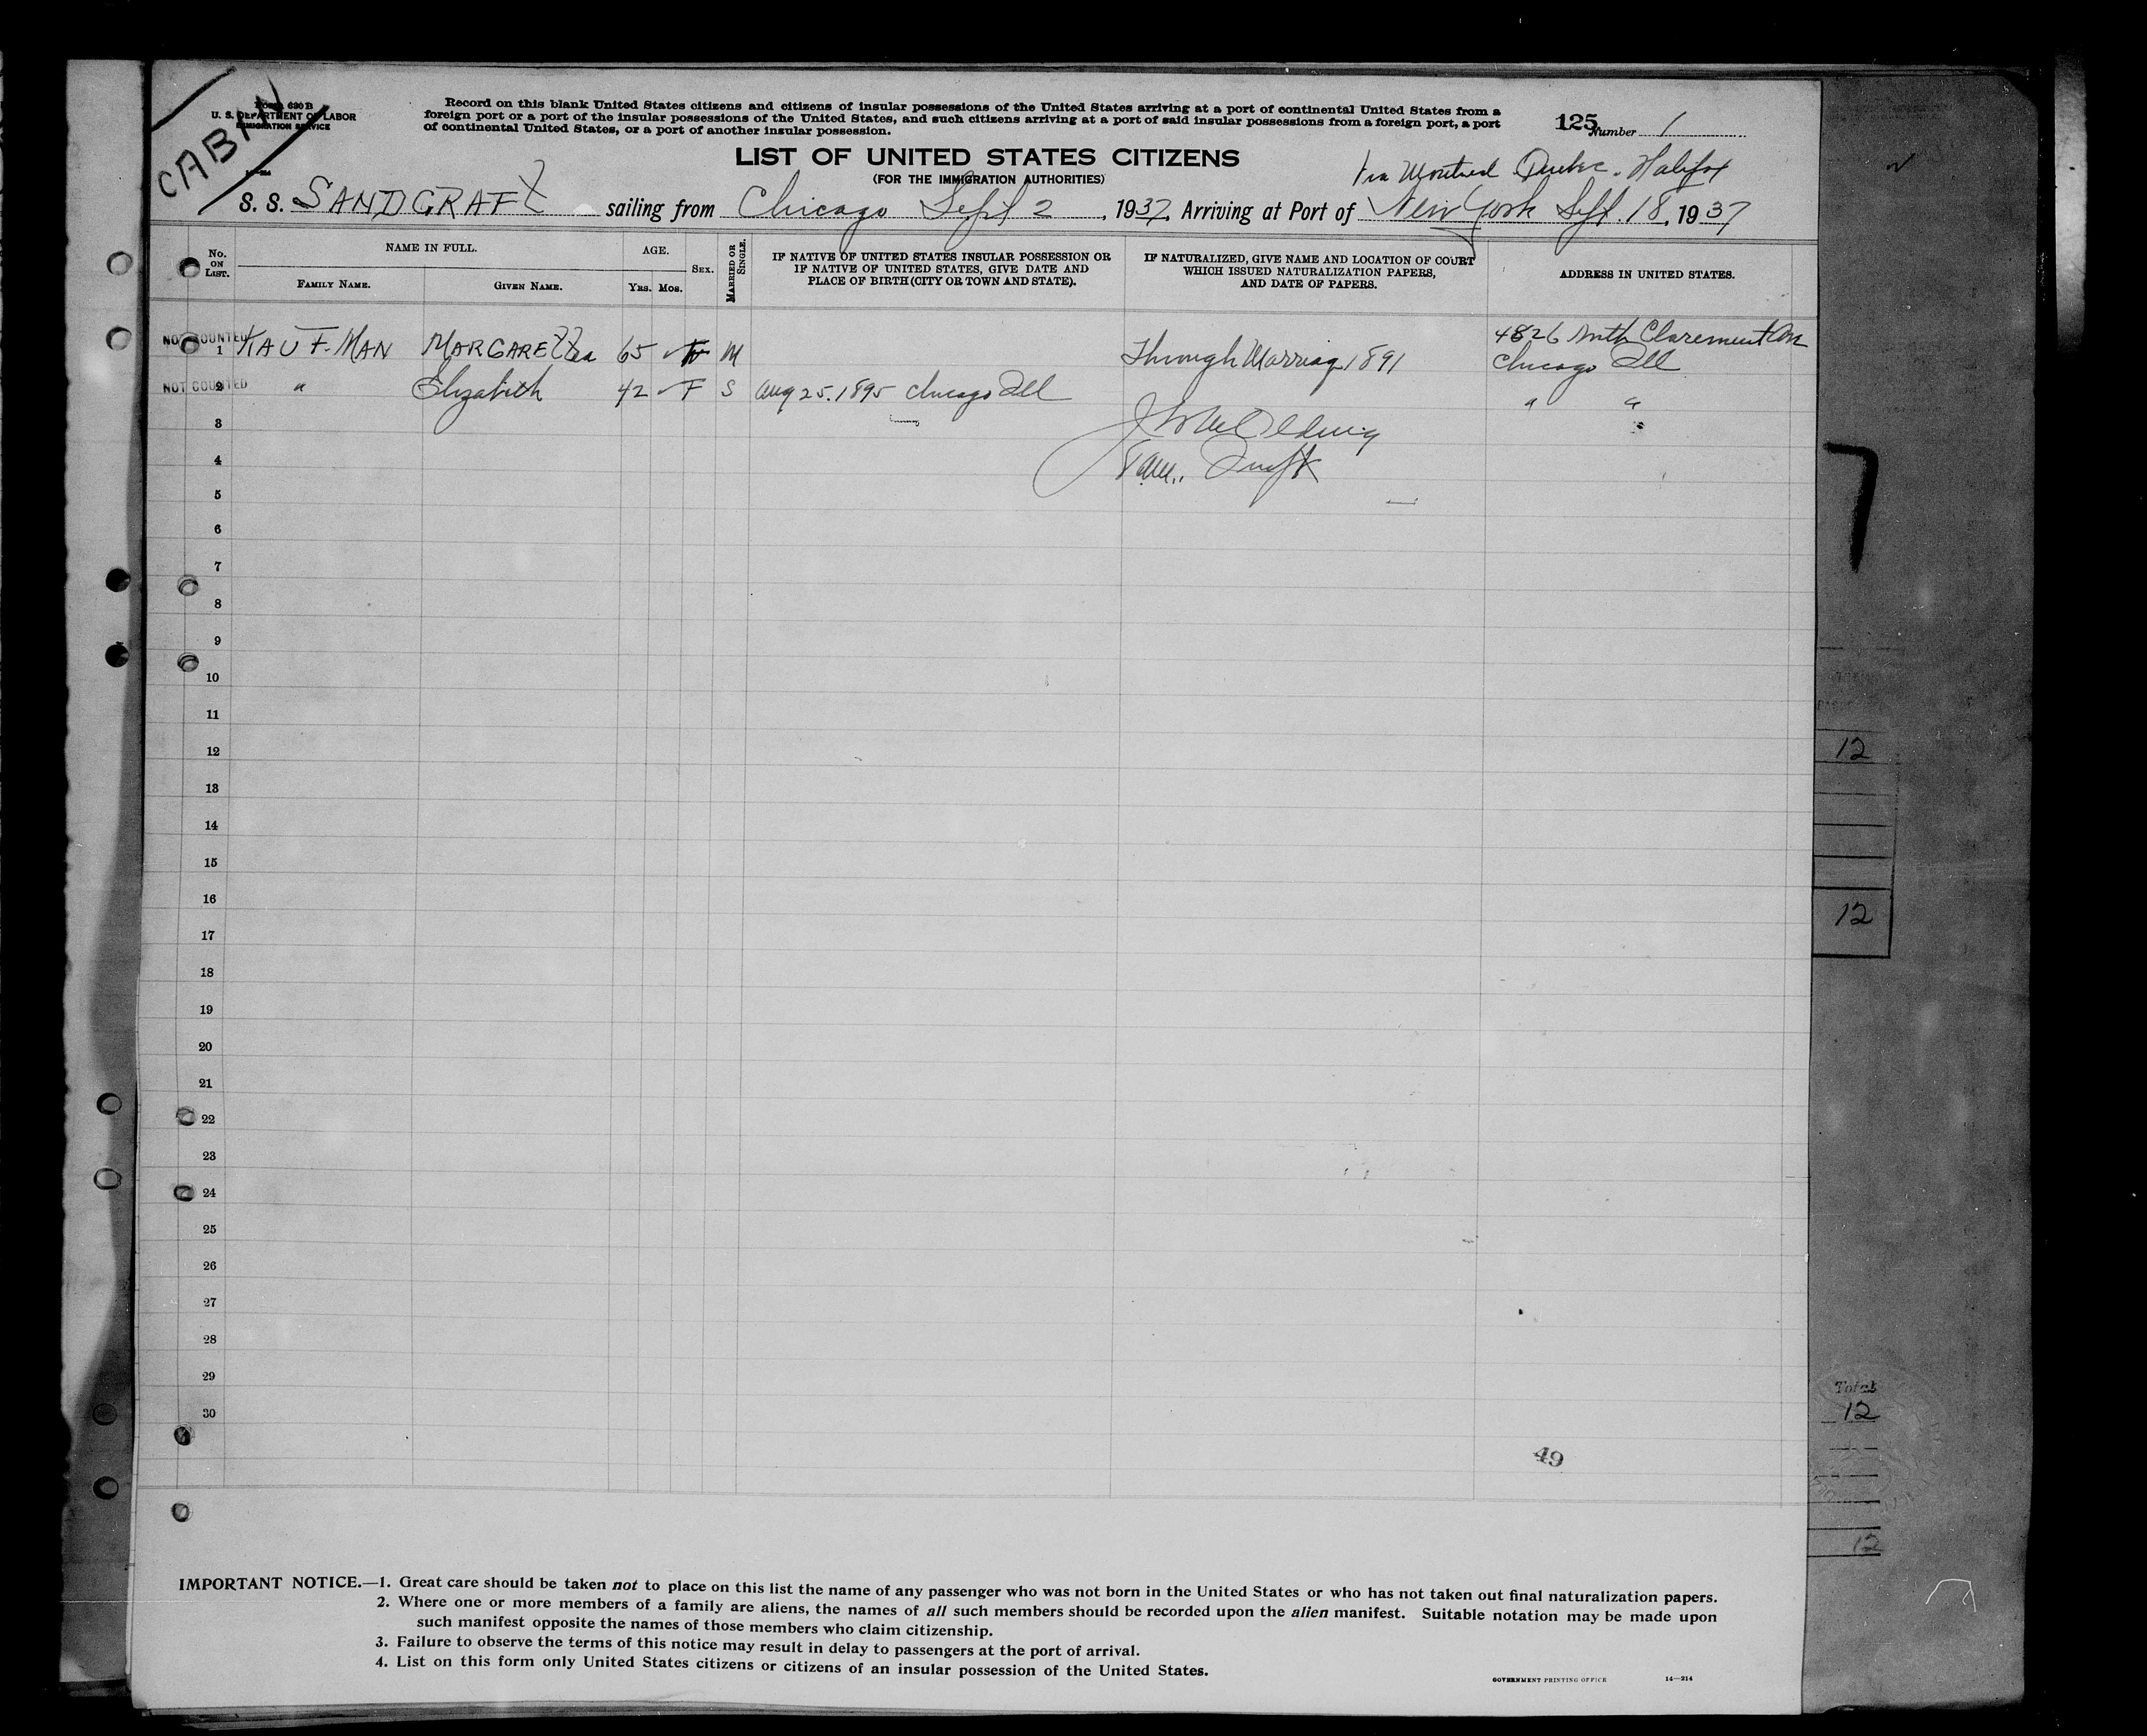 CABIN
Form 630 B
U. S. DEPARTMENT OF LABOR
IMMIGRATION SERVICE
Record on this blank United States citizens and citizens of insular possessions of the United States arriving at a port of continental United States from a
foreign port or a port of the insular possessions of the United States, and such citizens arriving at a port of said insular possessions from a foreign port, a port
of continental United States, or a port of another insular possession.
125 Number 1
LIST OF UNITED STATES CITIZENS
(FOR THE IMMIGRATION AUTHORITIES)
Via Montreal Quebec. Halifax
S. S. SANDGRAFT sailing from Chicago Sept 2, 1937, Arriving at Port of New York Sept. 18, 1937
No. ON LIST. NAME IN FULL. AGE. SEX. MARRIED OR SINGLE. IF NATIVE OF UNITED STATES INSULAR POSSESSION OR IF NATIVE OF UNITED STATES, GIVE DATE AND PLACE OF BIRTH (CITY OR TOWN AND STATE). IF NATURALIZED, GIVE NAME AND LOCATION OF COURT WHICH ISSUED NATURALIZATION PAPERS, AND DATE OF PAPERS. ADDRESS IN UNITED STATES.
FAMILY NAME. GIVEN NAME. YRS. MOS.
NOT COUNTED 1 KAUFMAN MARGARETTea 65 F M Through Marriag 1891 4826 North Claremont Ave
Chicago Ill
NOT COUNTED 2 " Elizabeth 42 F S Aug 25. 1895 Chicago Ill " "
3
4
5
6
7
8
9
10
11
12
13
14
15
16
17
18
19
20
21
22
23
24
25
26
27
28
29
30
49
IMPORTANT NOTICE.—1. Great care should be taken not to place on this list the name of any passenger who was not born in the United States or who has not taken out final naturalization papers.
2. Where one or more members of a family are aliens, the names of all such members should be recorded upon the alien manifest. Suitable notation may be made upon
such manifest opposite the names of those members who claim citizenship.
3. Failure to observe the terms of this notice may result in delay to passengers at the port of arrival.
4. List on this form only United States citizens or citizens of an insular possession of the United States.
GOVERNMENT PRINTING OFFICE 14—214
12
12
Total
12
12